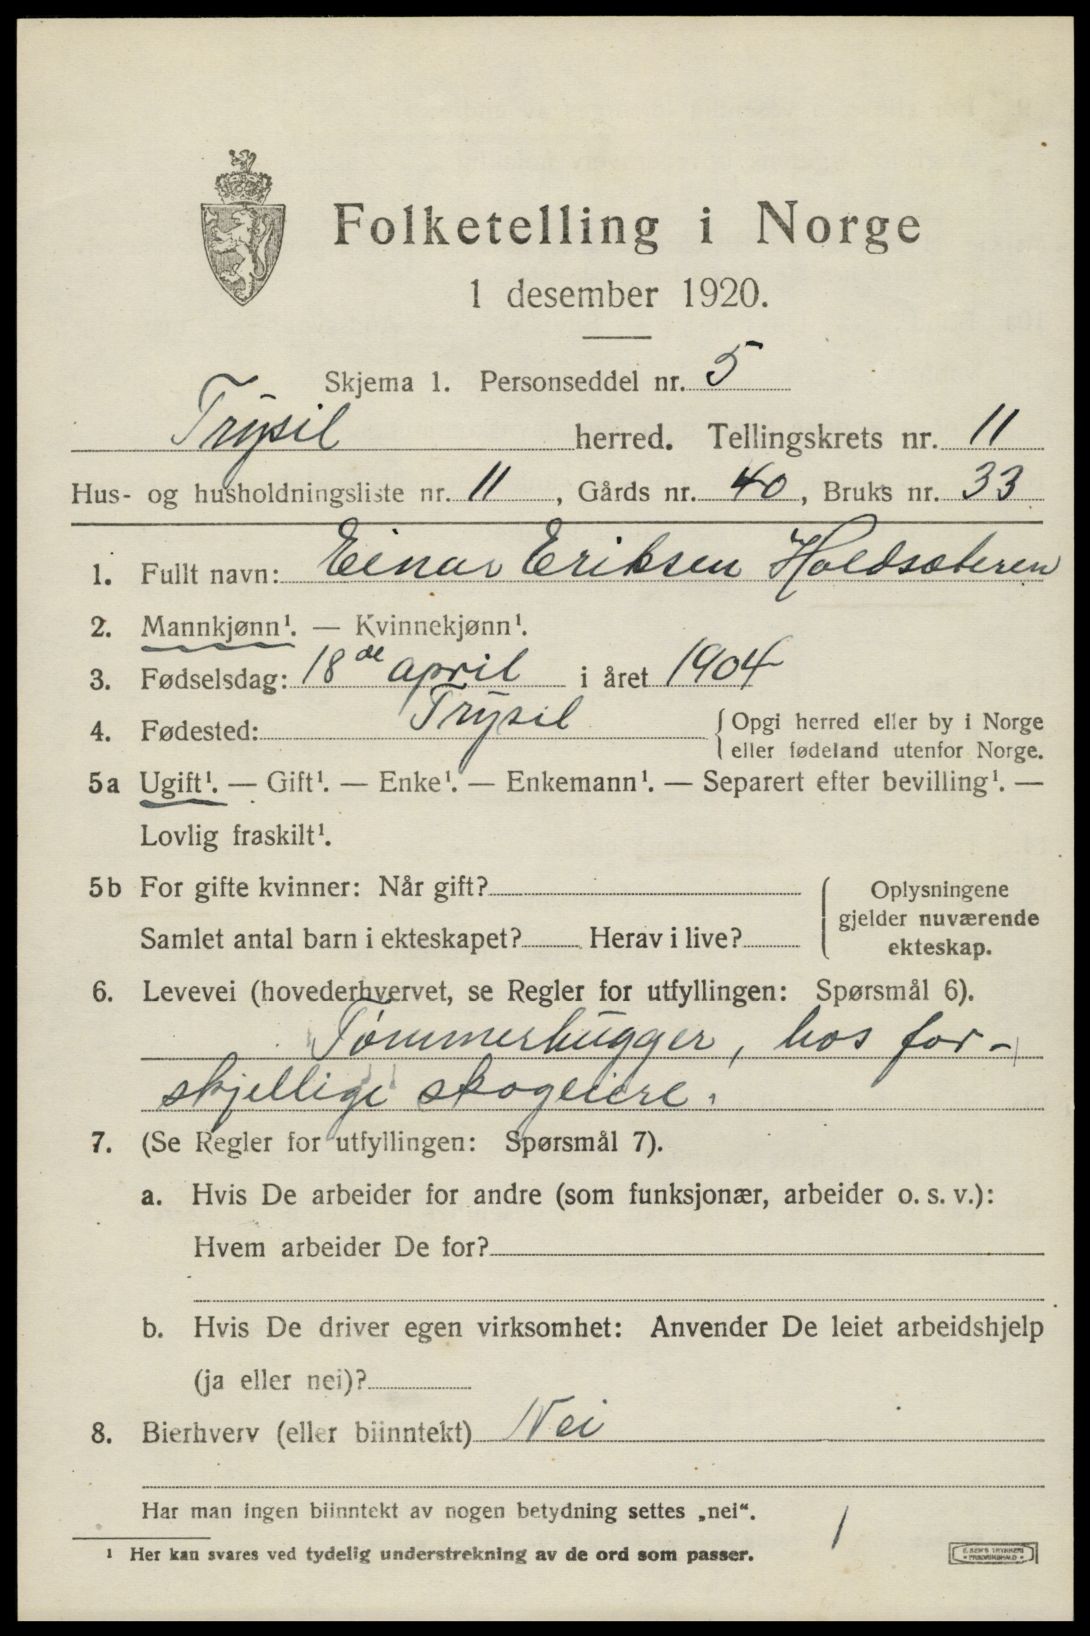 Folketelling i Norge
1 desember 1920.
Skjema 1. Personseddel nr. 5
Trysil herred. Tellingskrets nr. 11
Hus- og husholdningsliste nr. 11, Gårds nr. 40, Bruks nr. 33
1. Fullt navn: Einar Eriksen Holdsæteren
2. Mannkjønn¹. — Kvinnekjønn¹.
3. Fødselsdag: 18de april i året 1904
4. Fødested: Trysil {Opgi herred eller by i Norge
eller fødeland utenfor Norge.
5a Ugift¹. — Gift¹. — Enke¹. — Enkemann¹. — Separert efter bevilling¹. —
Lovlig fraskilt¹.
5b For gifte kvinner: Når gift?
Samlet antal barn i ekteskapet? Herav i live?
{Oplysningene
gjelder nuværende
ekteskap.
6. Levevei (hovederhvervet, se Regler for utfyllingen: Spørsmål 6).
Tømmerhugger, hos for-
skjellige skogeiere.
7. (Se Regler for utfyllingen: Spørsmål 7).
a. Hvis De arbeider for andre (som funksjonær, arbeider o. s. v.):
Hvem arbeider De for?
b. Hvis De driver egen virksomhet: Anvender De leiet arbeidshjelp
(ja eller nei)?
8. Bierhverv (eller biinntekt) Nei
Har man ingen biinntekt av nogen betydning settes „nei“.
1
¹ Her kan svares ved tydelig understrekning av de ord som passer.